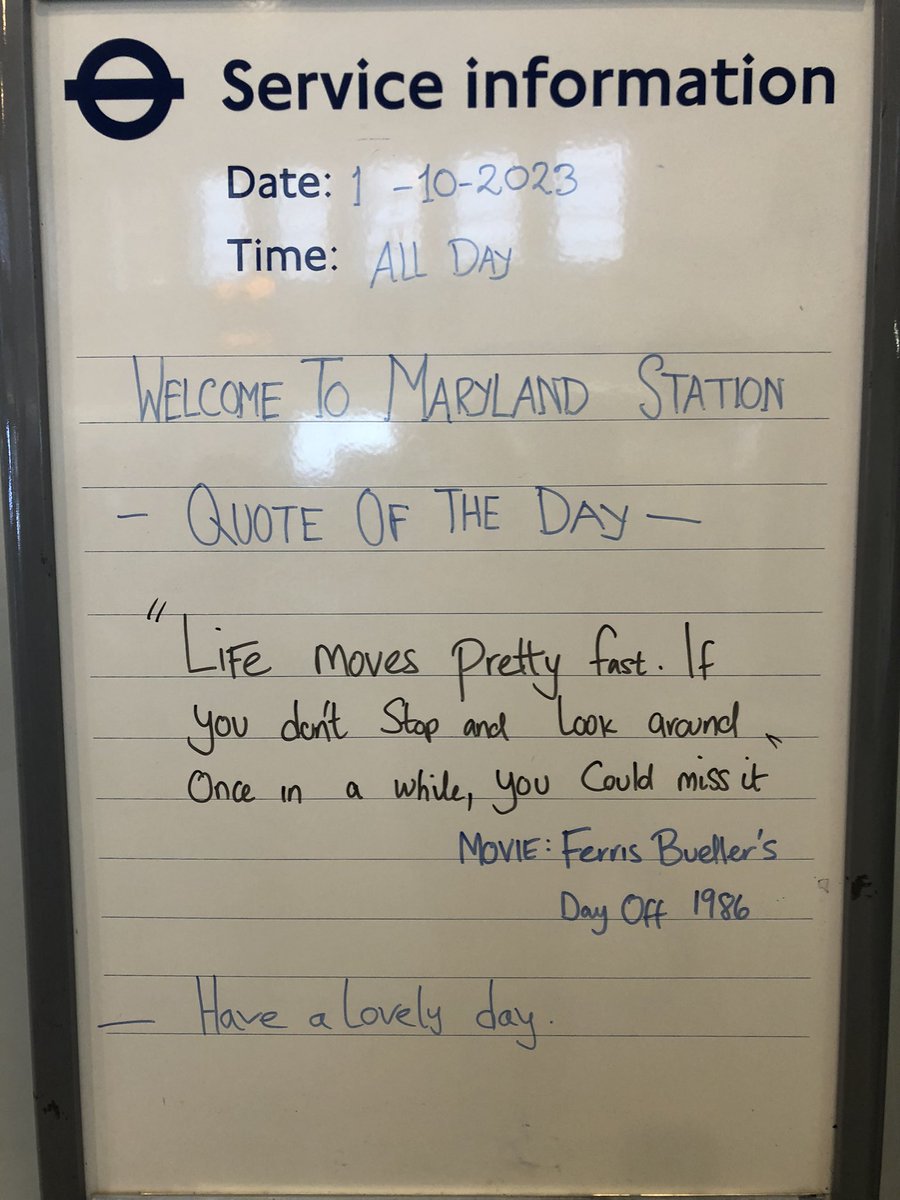 Service information
Date: 1 -10-2023
Time: ALL DAY
WELCOME TO MARYLAND STATION
- QUOTE OF THE DAY -
"Life moves pretty fast. If
you don't Stop and Look around
Once in a while, you Could miss it"
MOVIE: Ferris Bueller's
Day Off 1986
- Have a lovely day.